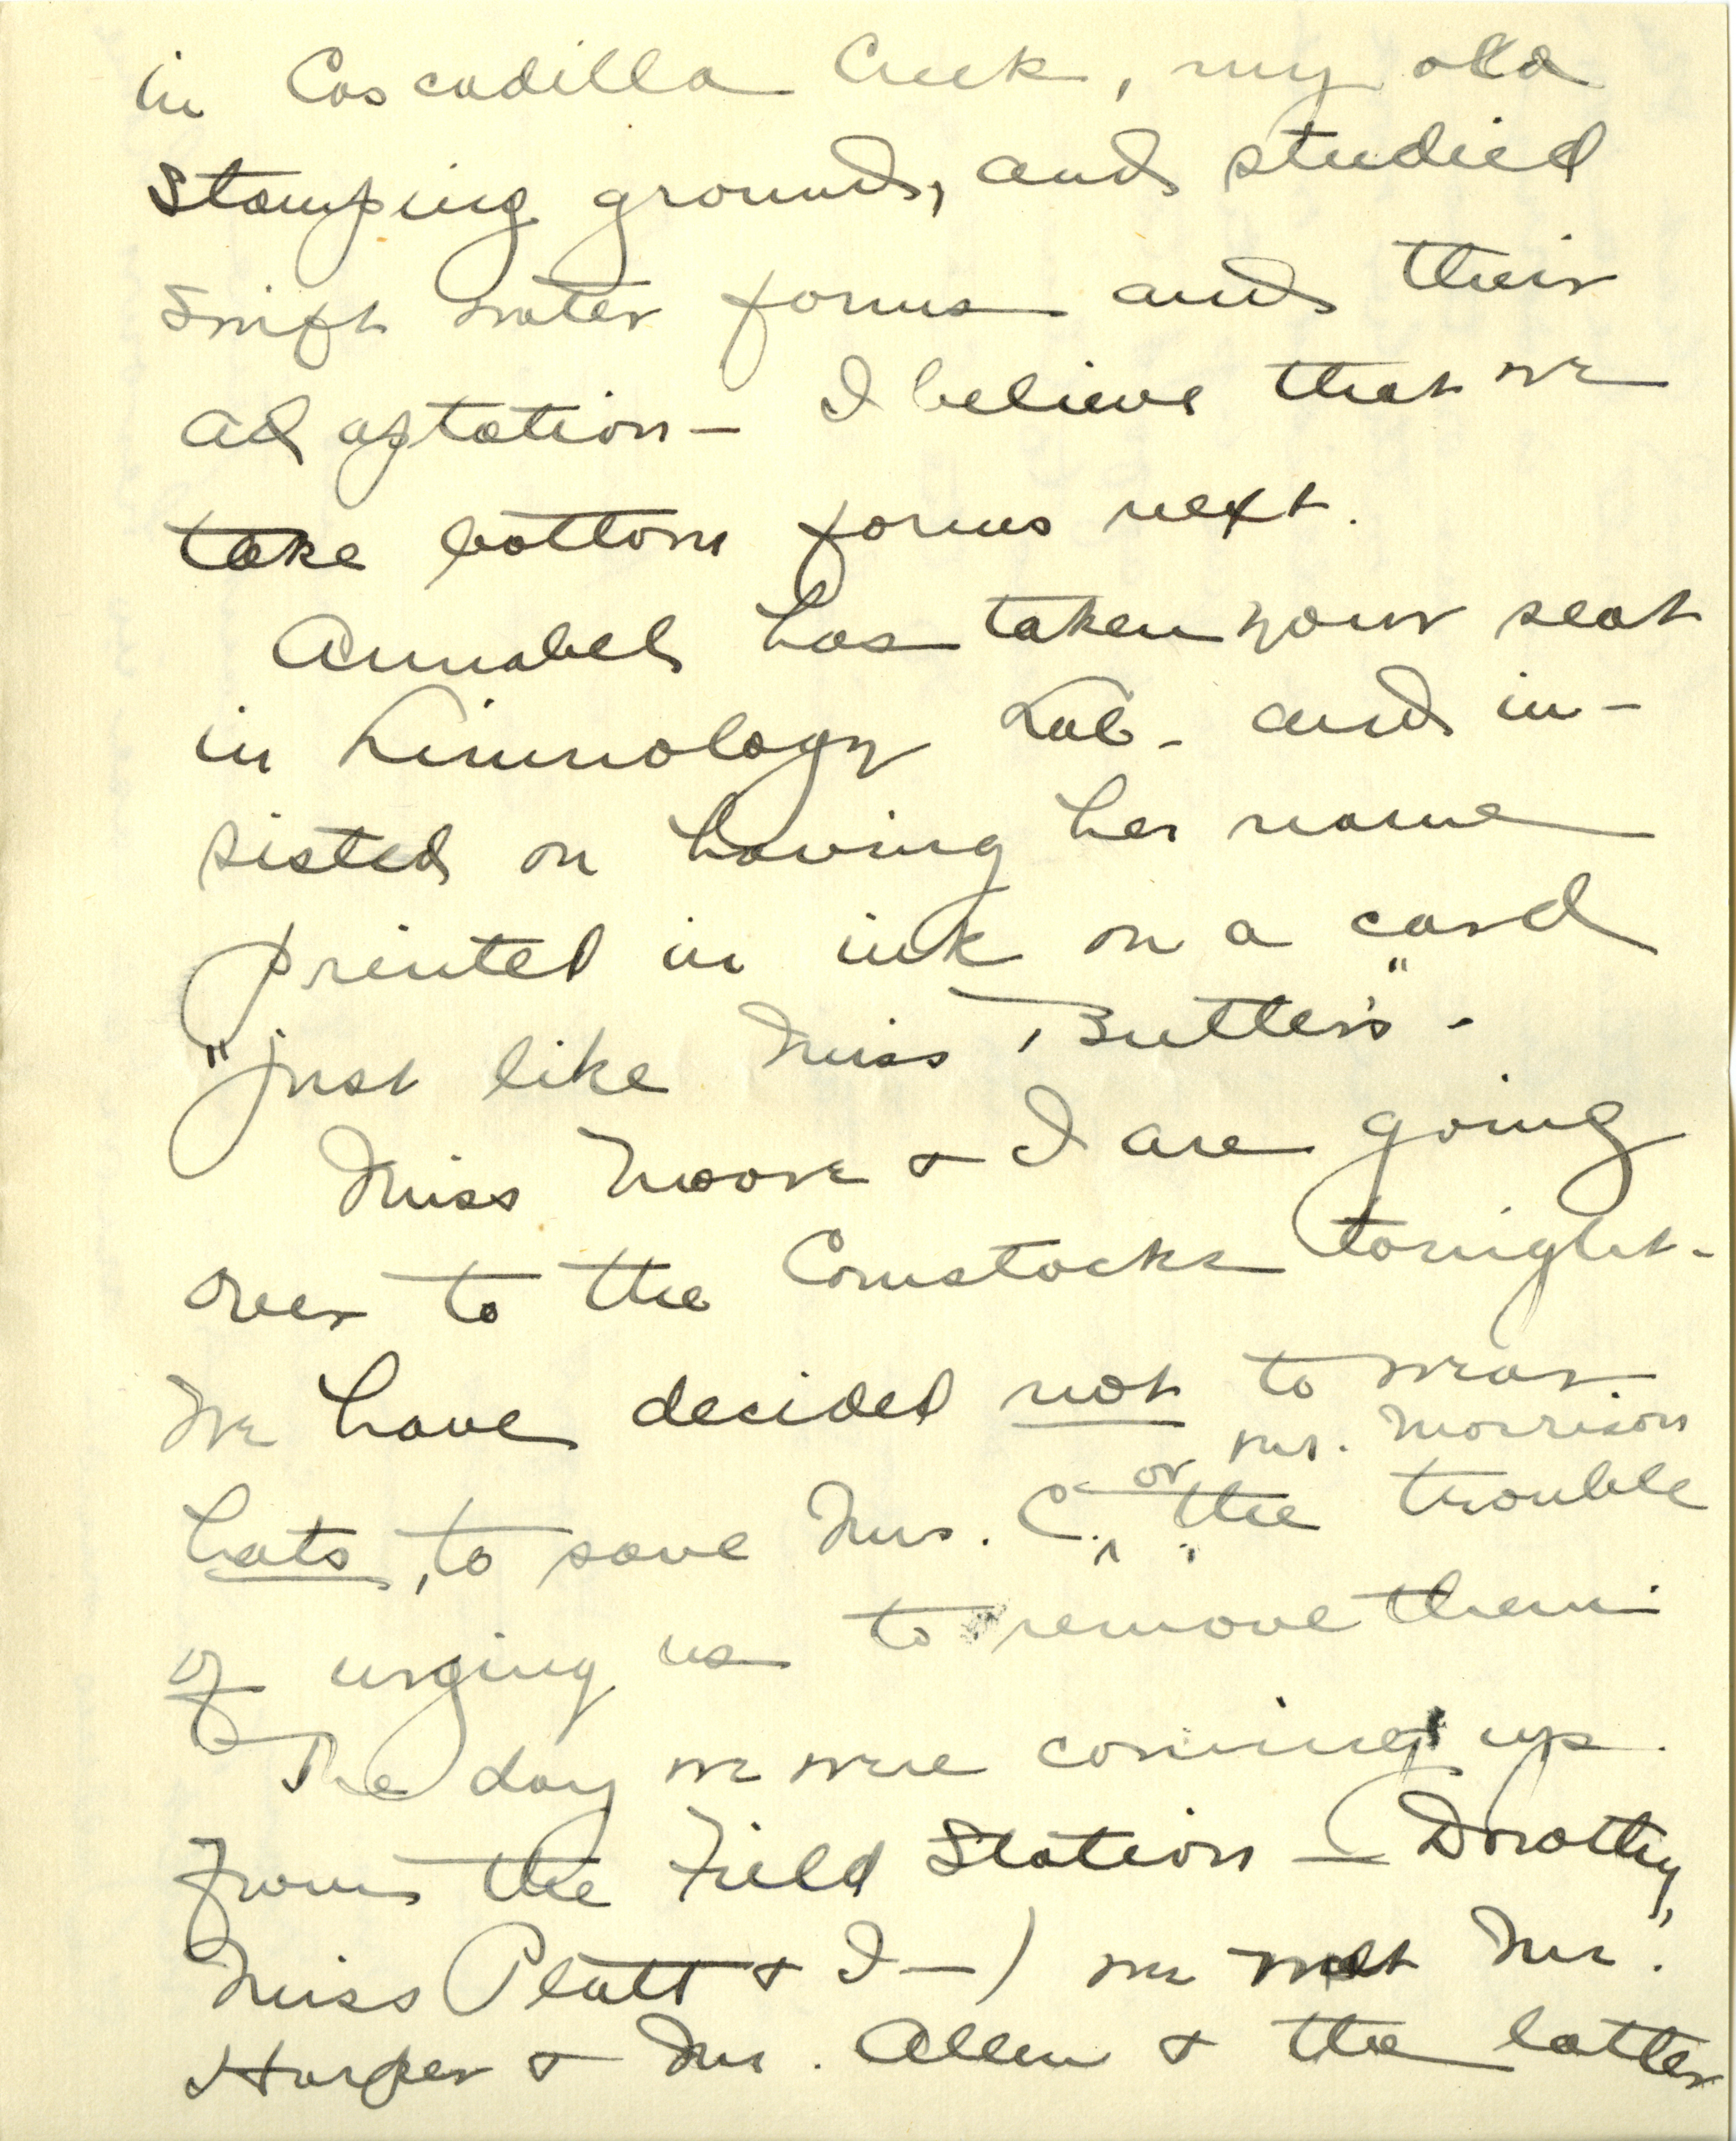 in Cascadilla Creek, my old
stamping ground, and studied
swift water forms and their
adaptation — I believe that we
take bottom forms next.
Annabel has taken your seat
in Limnology Lab - and in-
sisted on having her name
printed in ink on a card
"just like Miss Butler's" -
Miss Moore & I are going
over to the Comstocks tonight -
We have decided not to wear
or Mr. Morrison
hats, to save Mrs. C. ^ the trouble
of urging us to remove them.
The day we were coming up
from the Field Station — (Dorothy,
Miss Platt & I —) we met Mr.
Harper & Mr. Allen & the latter